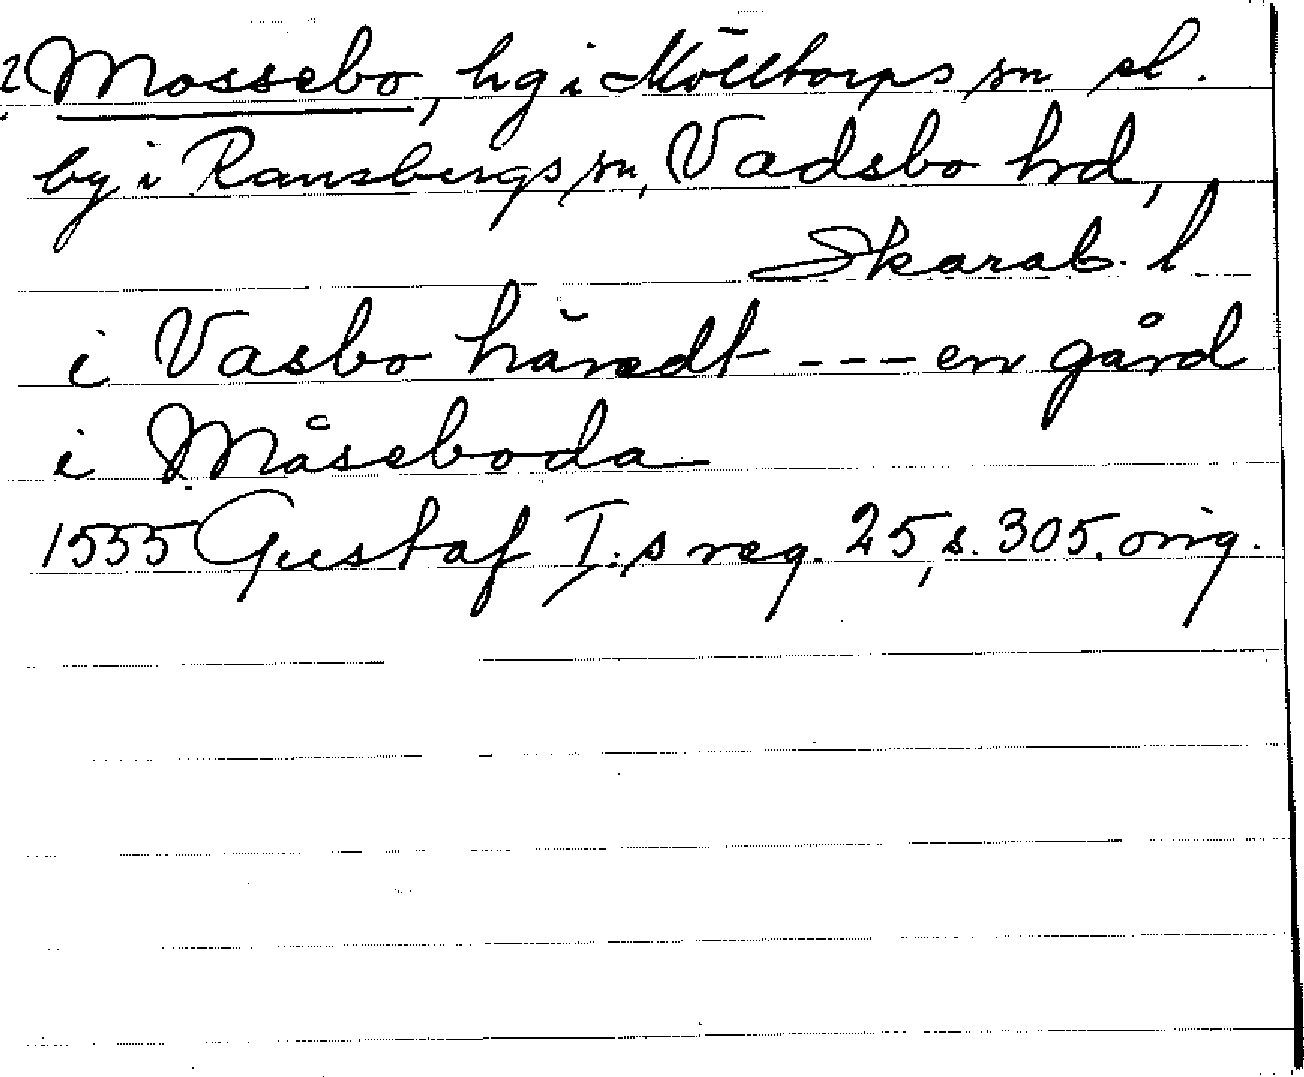 ? Mossebo, hg i Mölltorps sn el.
by i Ransbergs sn, Vadsbo hrd,
Skarab. l
i Vasbo häredt --- en gård
i Måseboda
1555 Gustaf I:s reg. 25, s. 305, orig.